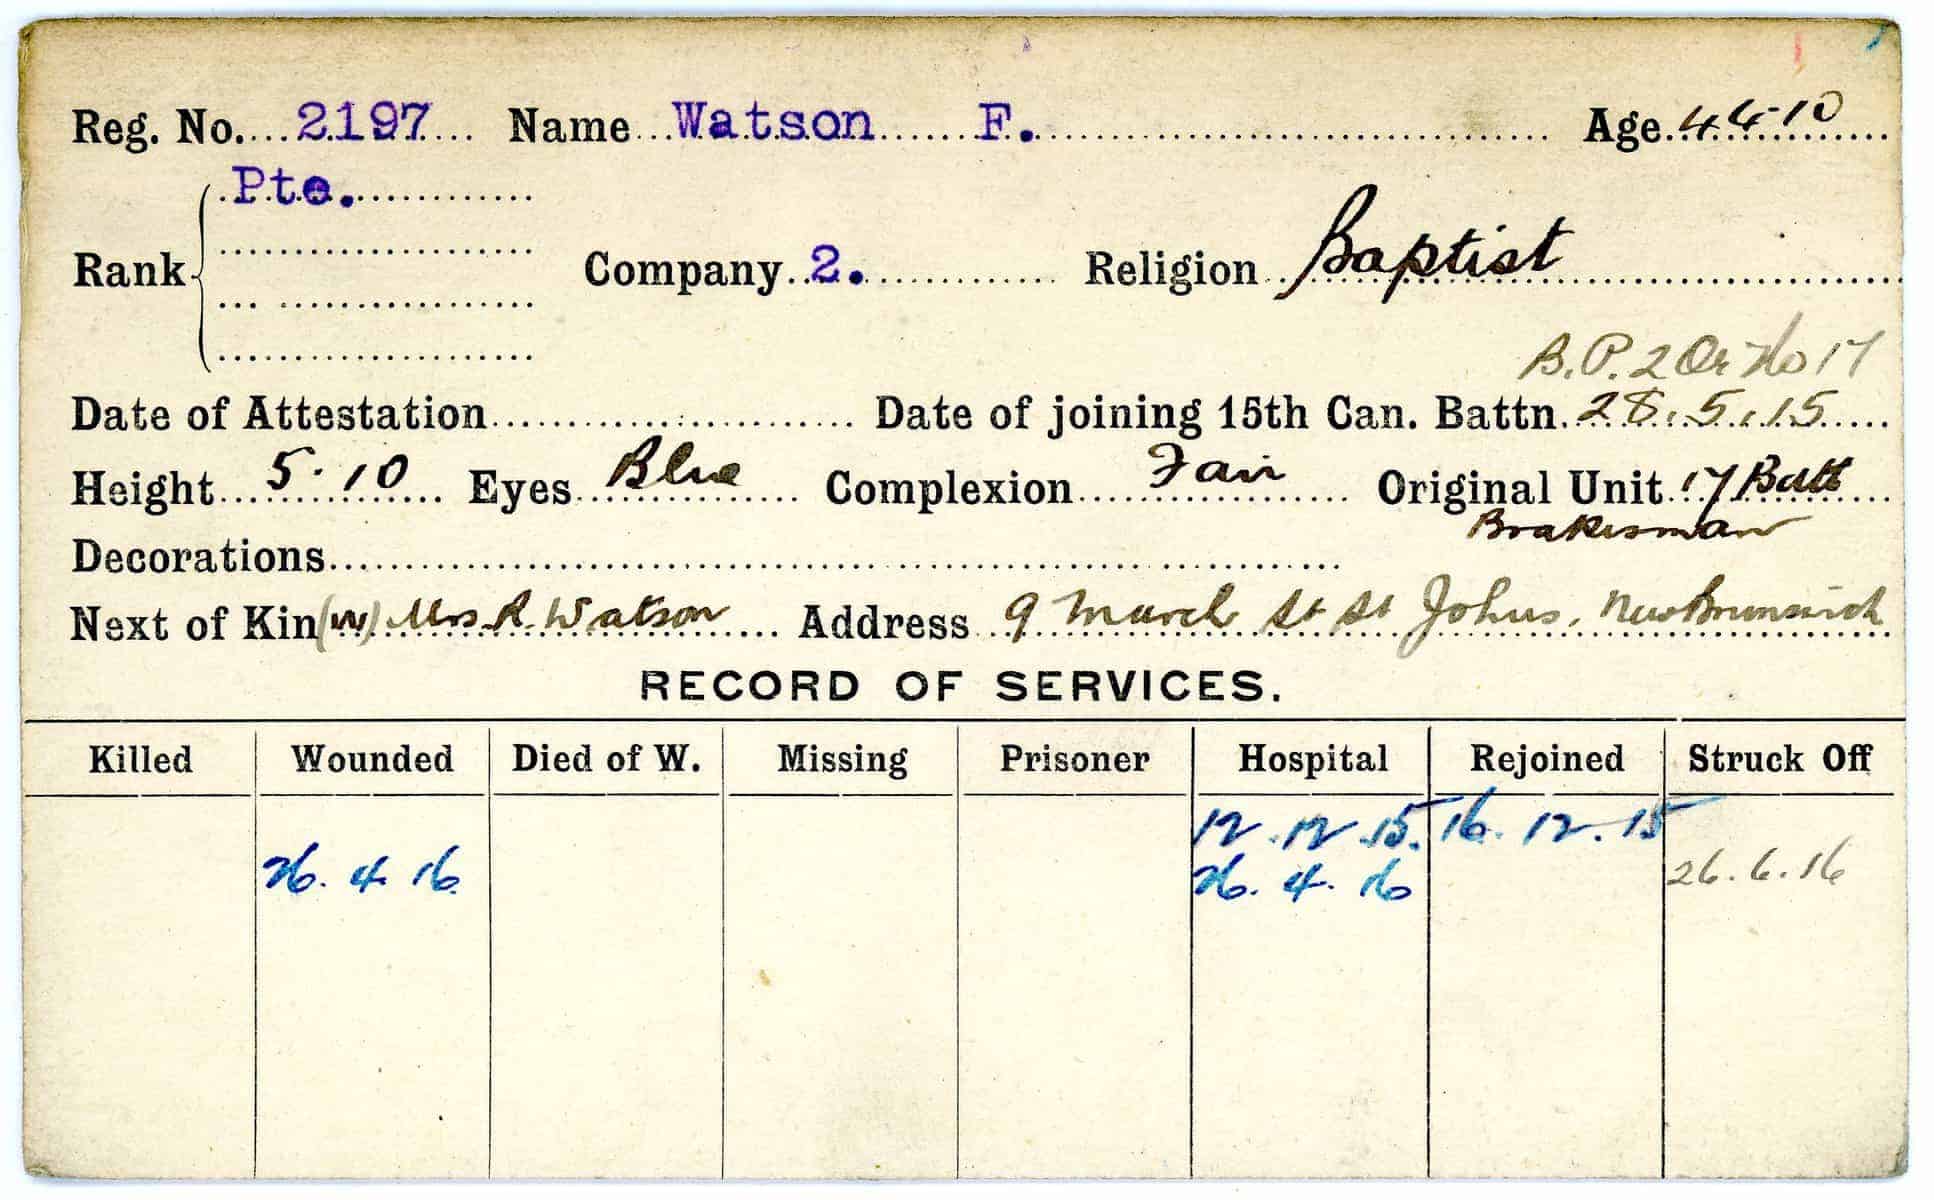 Reg. No. 2197 Name Watson F. Age 44-10
Pte.
Rank Company 2. Religion Baptist
B.P. 2 Or No 17
Date of Attestation Date of joining 15th Can. Battn. 28.5.15
Height 5.10 Eyes Blue Complexion Fair Original Unit 17 Batt
Brakesman
Decorations
Next of Kin (W) Mrs. R. Watson Address 9 March St St Johns, New Brunswick
RECORD OF SERVICES.
Killed Wounded Died of W. Missing Prisoner Hospital Rejoined Struck Off
12.12.15. 16.12.15
26.4.16 26.4.16 26.6.16